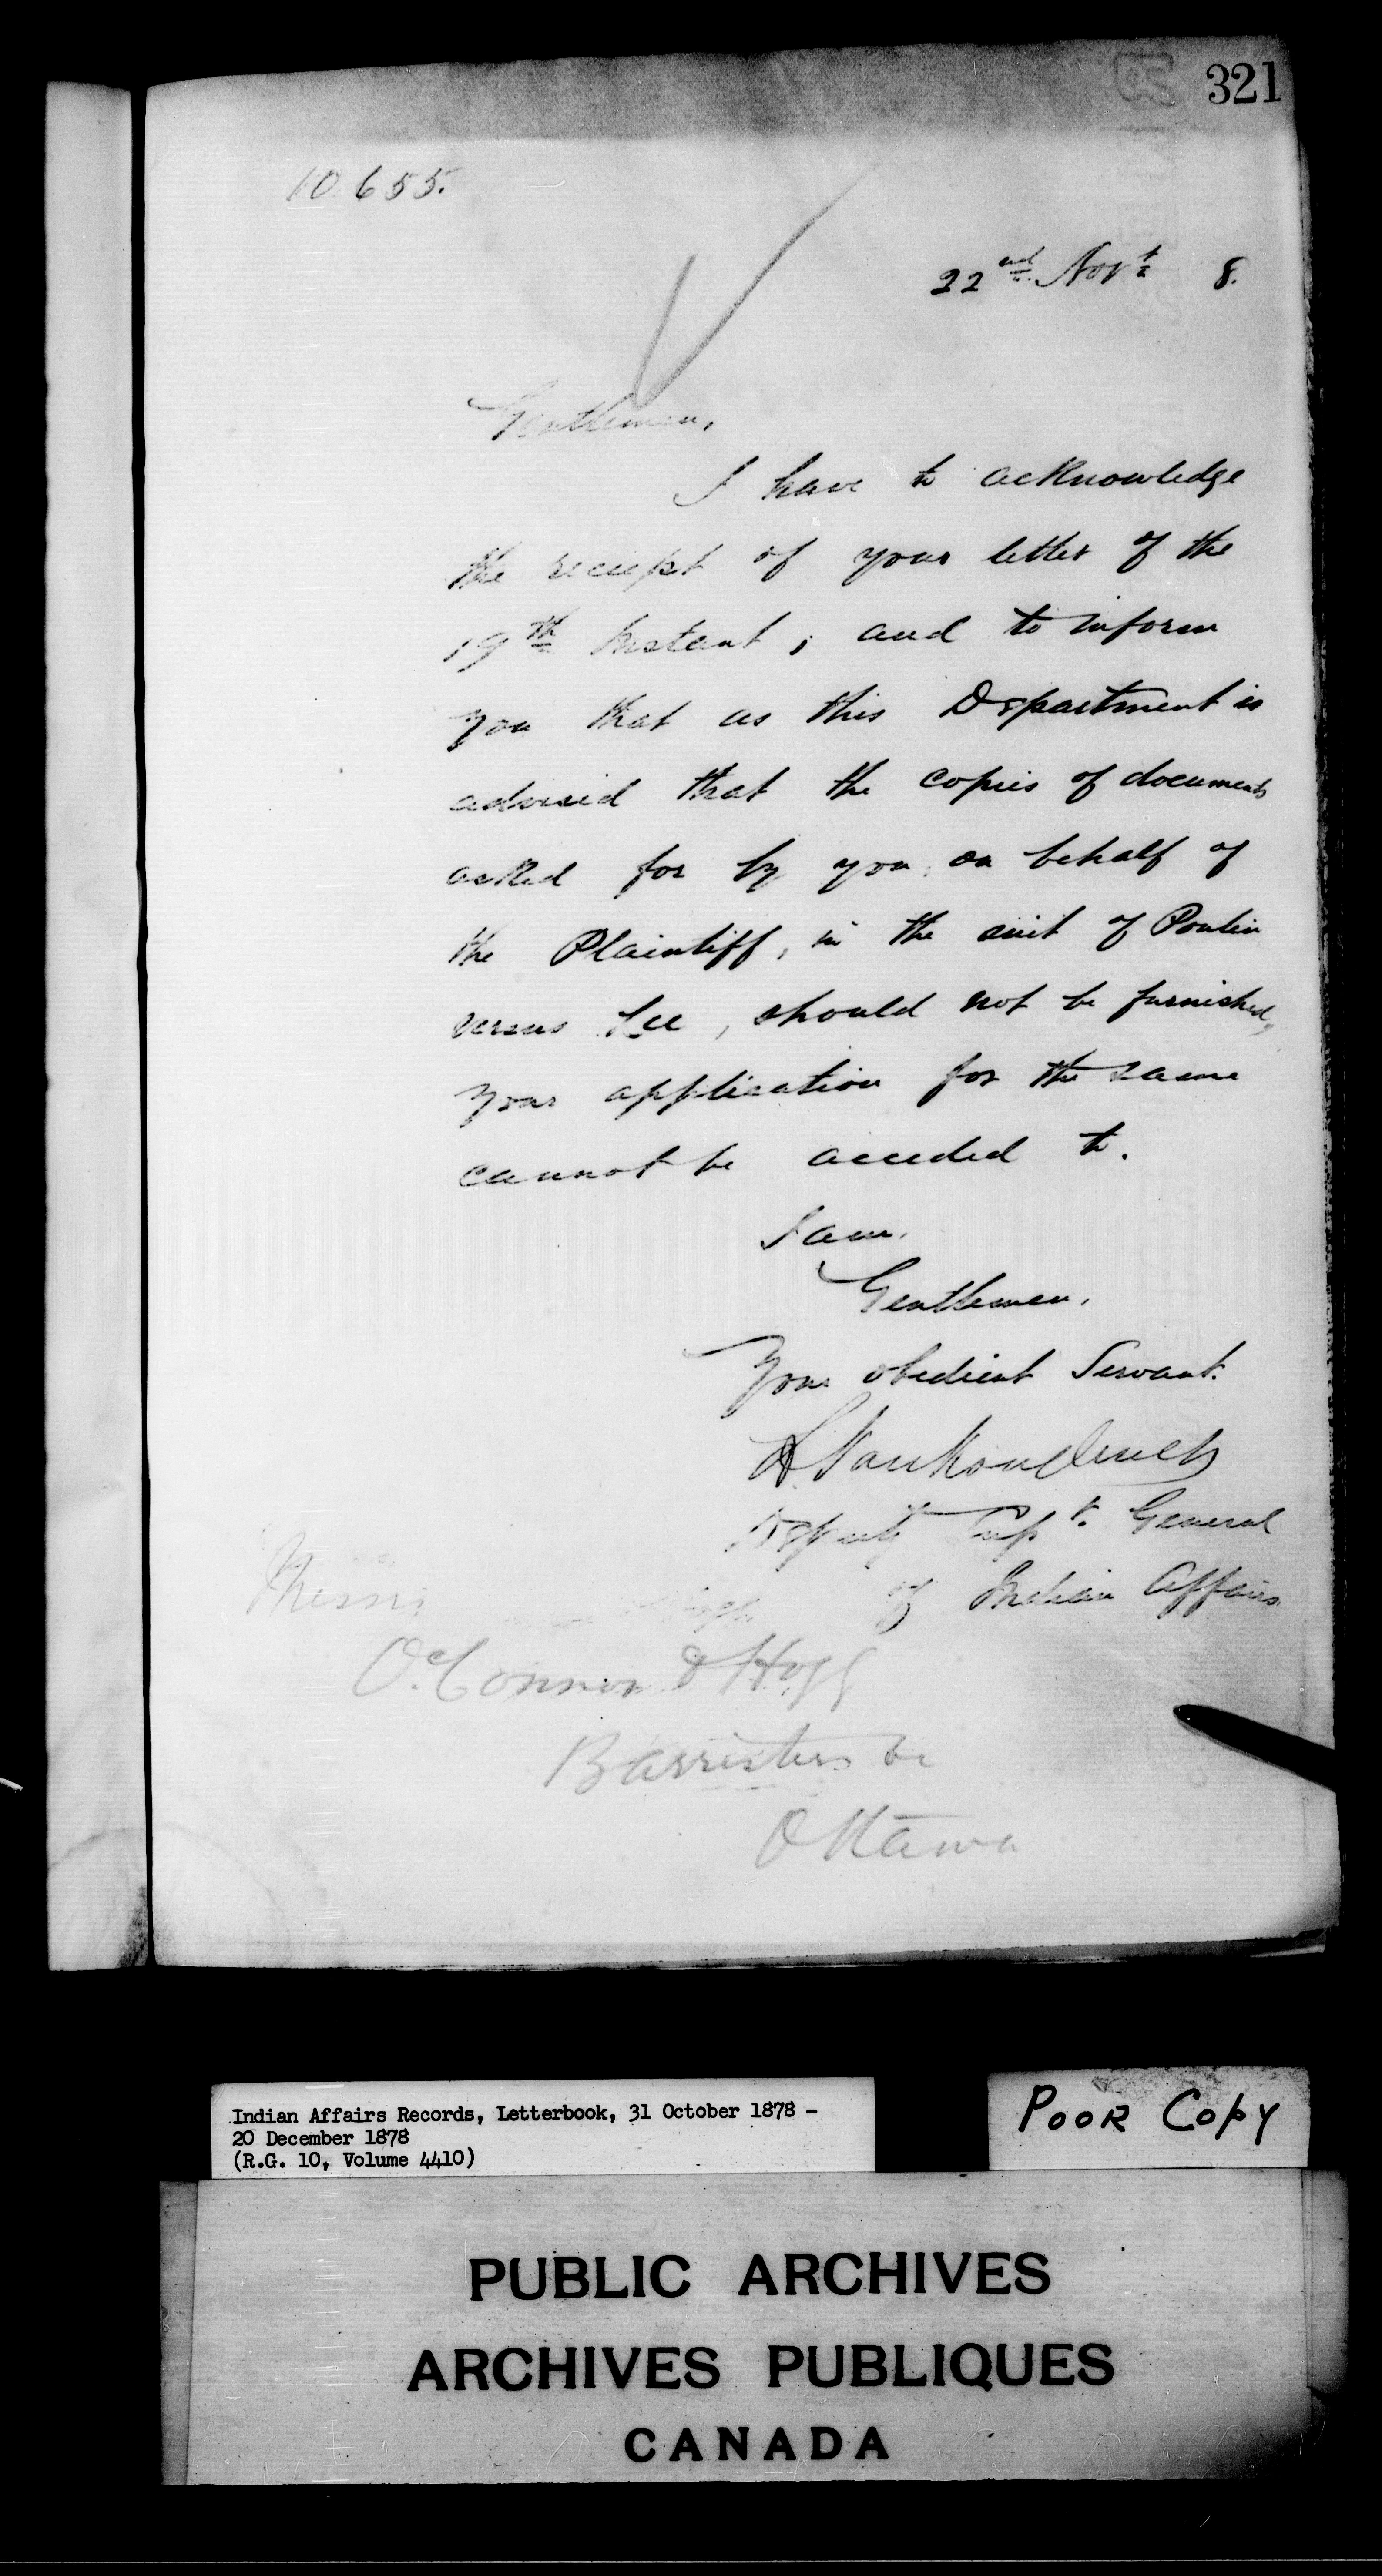 321
10.655.
22nd Novr 8.
Gentlemen,
I have to acknowledge
the receipt of your letter of the
19th Instant, and to inform
you that as this Department is
advised that the copies of documents
asked for by you, on behalf of
the Plaintiff, in the suit of Poulin
versus Lee, should not be furnished,
your application for the same
cannot be acceded to.
I am,
Gentlemen,
Your obedient Servant.
L VanKoughnet
Deputy Supt. General
of Indian Affairs
Messrs
O'Connor & Hogg
Barristers &c
Ottawa
Indian Affairs Records, Letterbook, 31 October 1878 -
20 December 1878
(R.G. 10, Volume 4410)
POOR COPY
PUBLIC ARCHIVES
ARCHIVES PUBLIQUES
CANADA